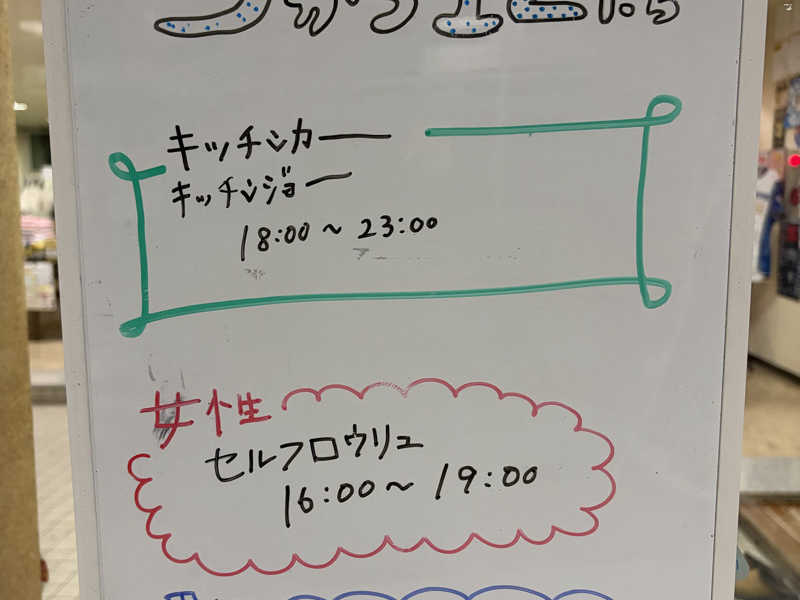 キッチンカー
キッチンジョー
18:00～23:00
女性
セルフロウリュ
16:00～19:00